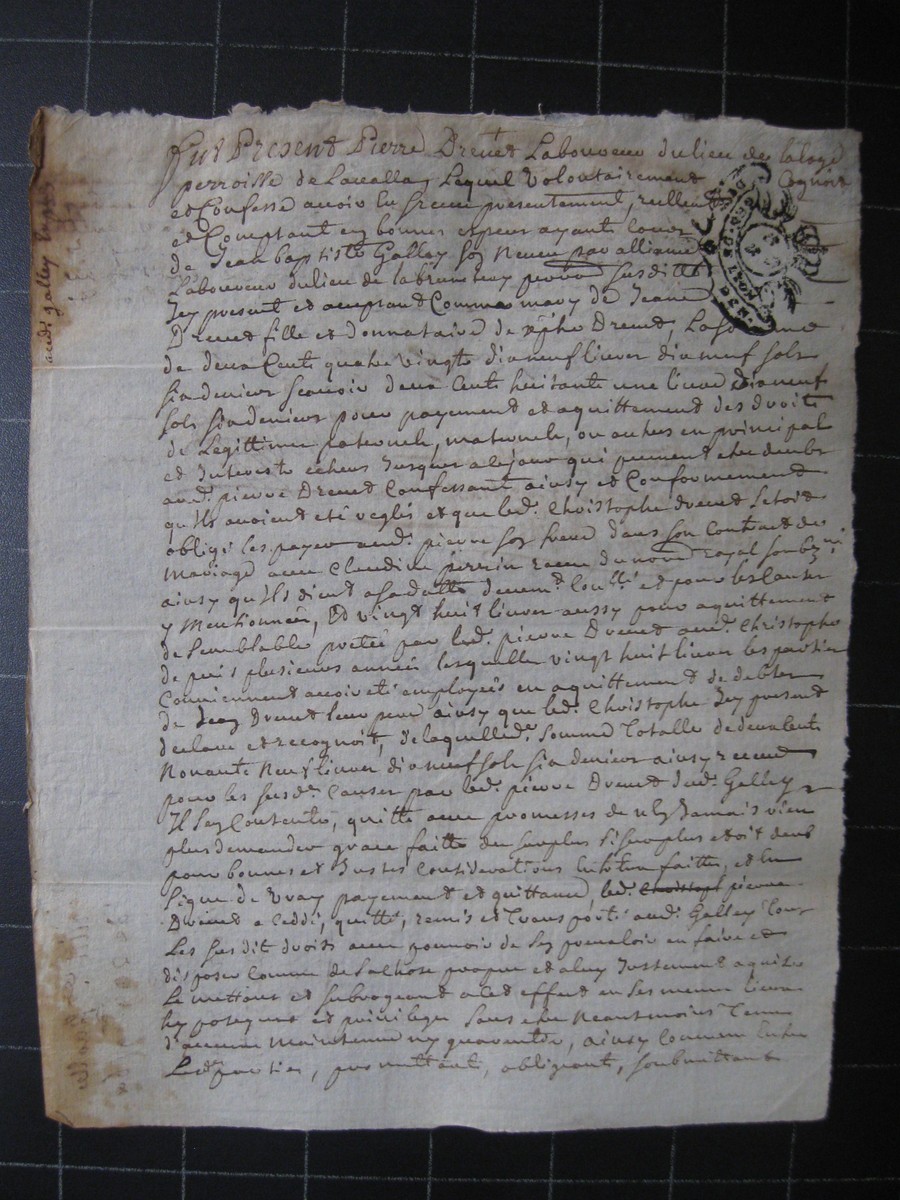 Fut Present Pierre Drevet Laboureur du lieu de la loge
perroisse de Lavalla, Lequel Volontairement Cognoit
et Confesse avoir Eu Receu presentement, reellement
et Comptant en bonnes especes ayants cours
de Jean baptiste Galley son Neveu par alliance
Laboureur du lieu de susditte
Icy present et acceptant Comme mary de Jeane
Drevet fille et donnataire de xphe Drevet, La somme
de deux Cents quatre vingts dixneuf livres dixneuf sols
six deniers scavoir deux Cents huitante une livres dixneuf
sols six deniers pour payement et aquittement des droits
de Legittime paternels, maternels, ou autres en principal
et Interests echeus Jusques a ce jour qui peuvent etre deubs
aud. pierre Drevet Confessant ainsy et Conformement
qu'Ils avoient eté reglés et que led. Christophe drevet Setoit
obligé les payer aud. pierre son frere dans son Contract de
Mariage avec Claudine perrin receu du notaire royal soubz.né
ainsy qu'Ils dient a sa datte et pour les Causes
y Mentionnées, Et vingt huit livres aussy pour aquittement
de Semblable pretée par led. pierre Drevet aud. Christophe
de puis plusieurs années lesquelles vingt huit livres les parties
Conviennent avoir eté employées en aquittement de debtes
de Jean Drevet leur pere ainsy que led. Christophe Icy present
declare et recognoit, de laquelle d. somme Totalle de deux Cents
Nonante Neuf livres dixneuf sols six deniers ainsy receue
pour les susd. Causes par led. pierre Drevet dud. Galley
Il s'en Contente, quitte avec promesses de n'en Jamais rien
plus demander grace faitte du surplus si surplus etoit deub
pour bonnes et Justes Considerations faitte, et En
Signe de vray payement et quittance, led. Christoph pierre
Drevet a Ceddé, quitté, remis et transporté aud. Galley Tous
Les susdit droits avec pouvoir de s'en prevaloir en faire et
disposer Comme de sa Chose propre et a luy Justement aquise
Le mettant et subrogeant a cet effect en ses meme lieux
hypoteques et privileges sans etre Neantmoins Tenu
d'aucune maintenue ny guarentie, ainsy Convenu Entre
Lesd. parties, promettant, obligeant, soubmettant